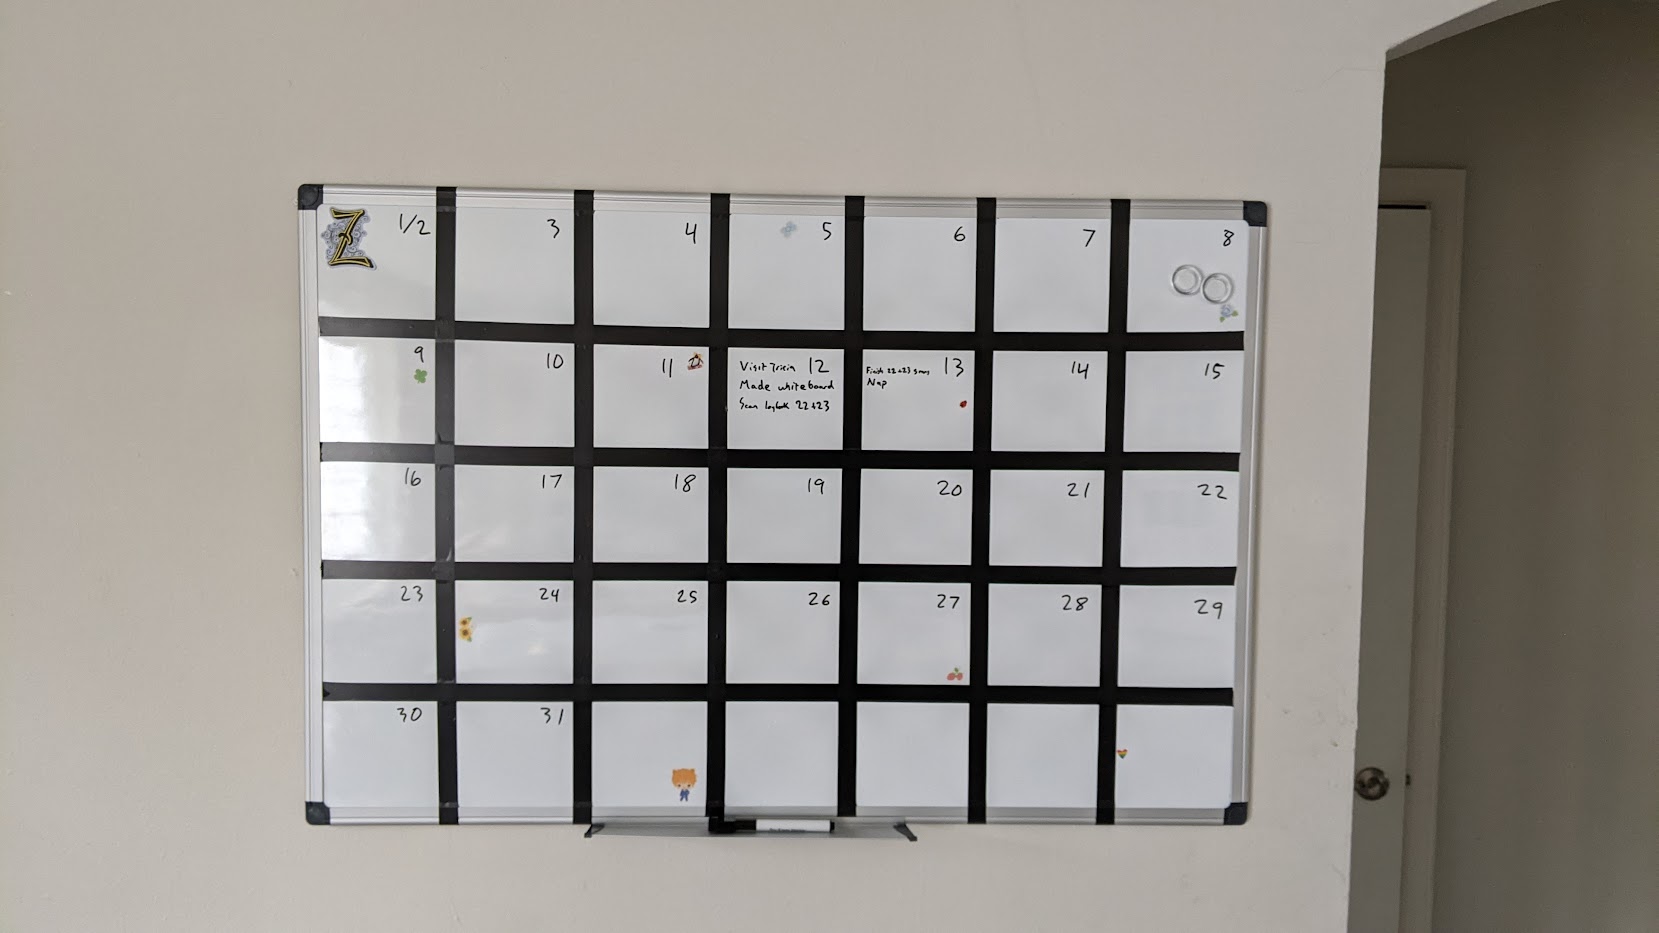 Z
1/2
3
4
5
6
7
8
9
10
11
12
Visit
Made whiteboard
Scan logbook 22+23
13
Finish 22+23 scans
Nap
14
15
16
17
18
19
20
21
22
23
24
25
26
27
28
29
30
31